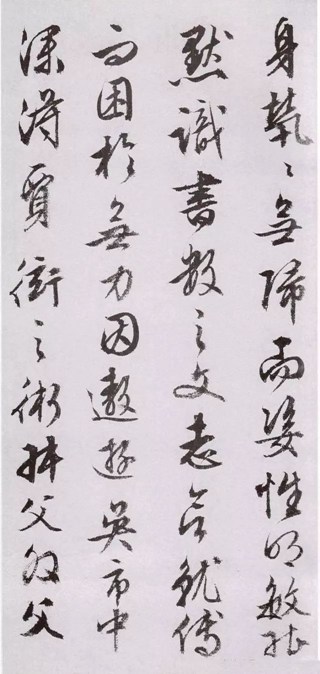 身煢〻無歸而姿性明敏於
默識書數之文志欲就傅
而困於無力因遨遊吳市中
深得賈衒之術拜父為父